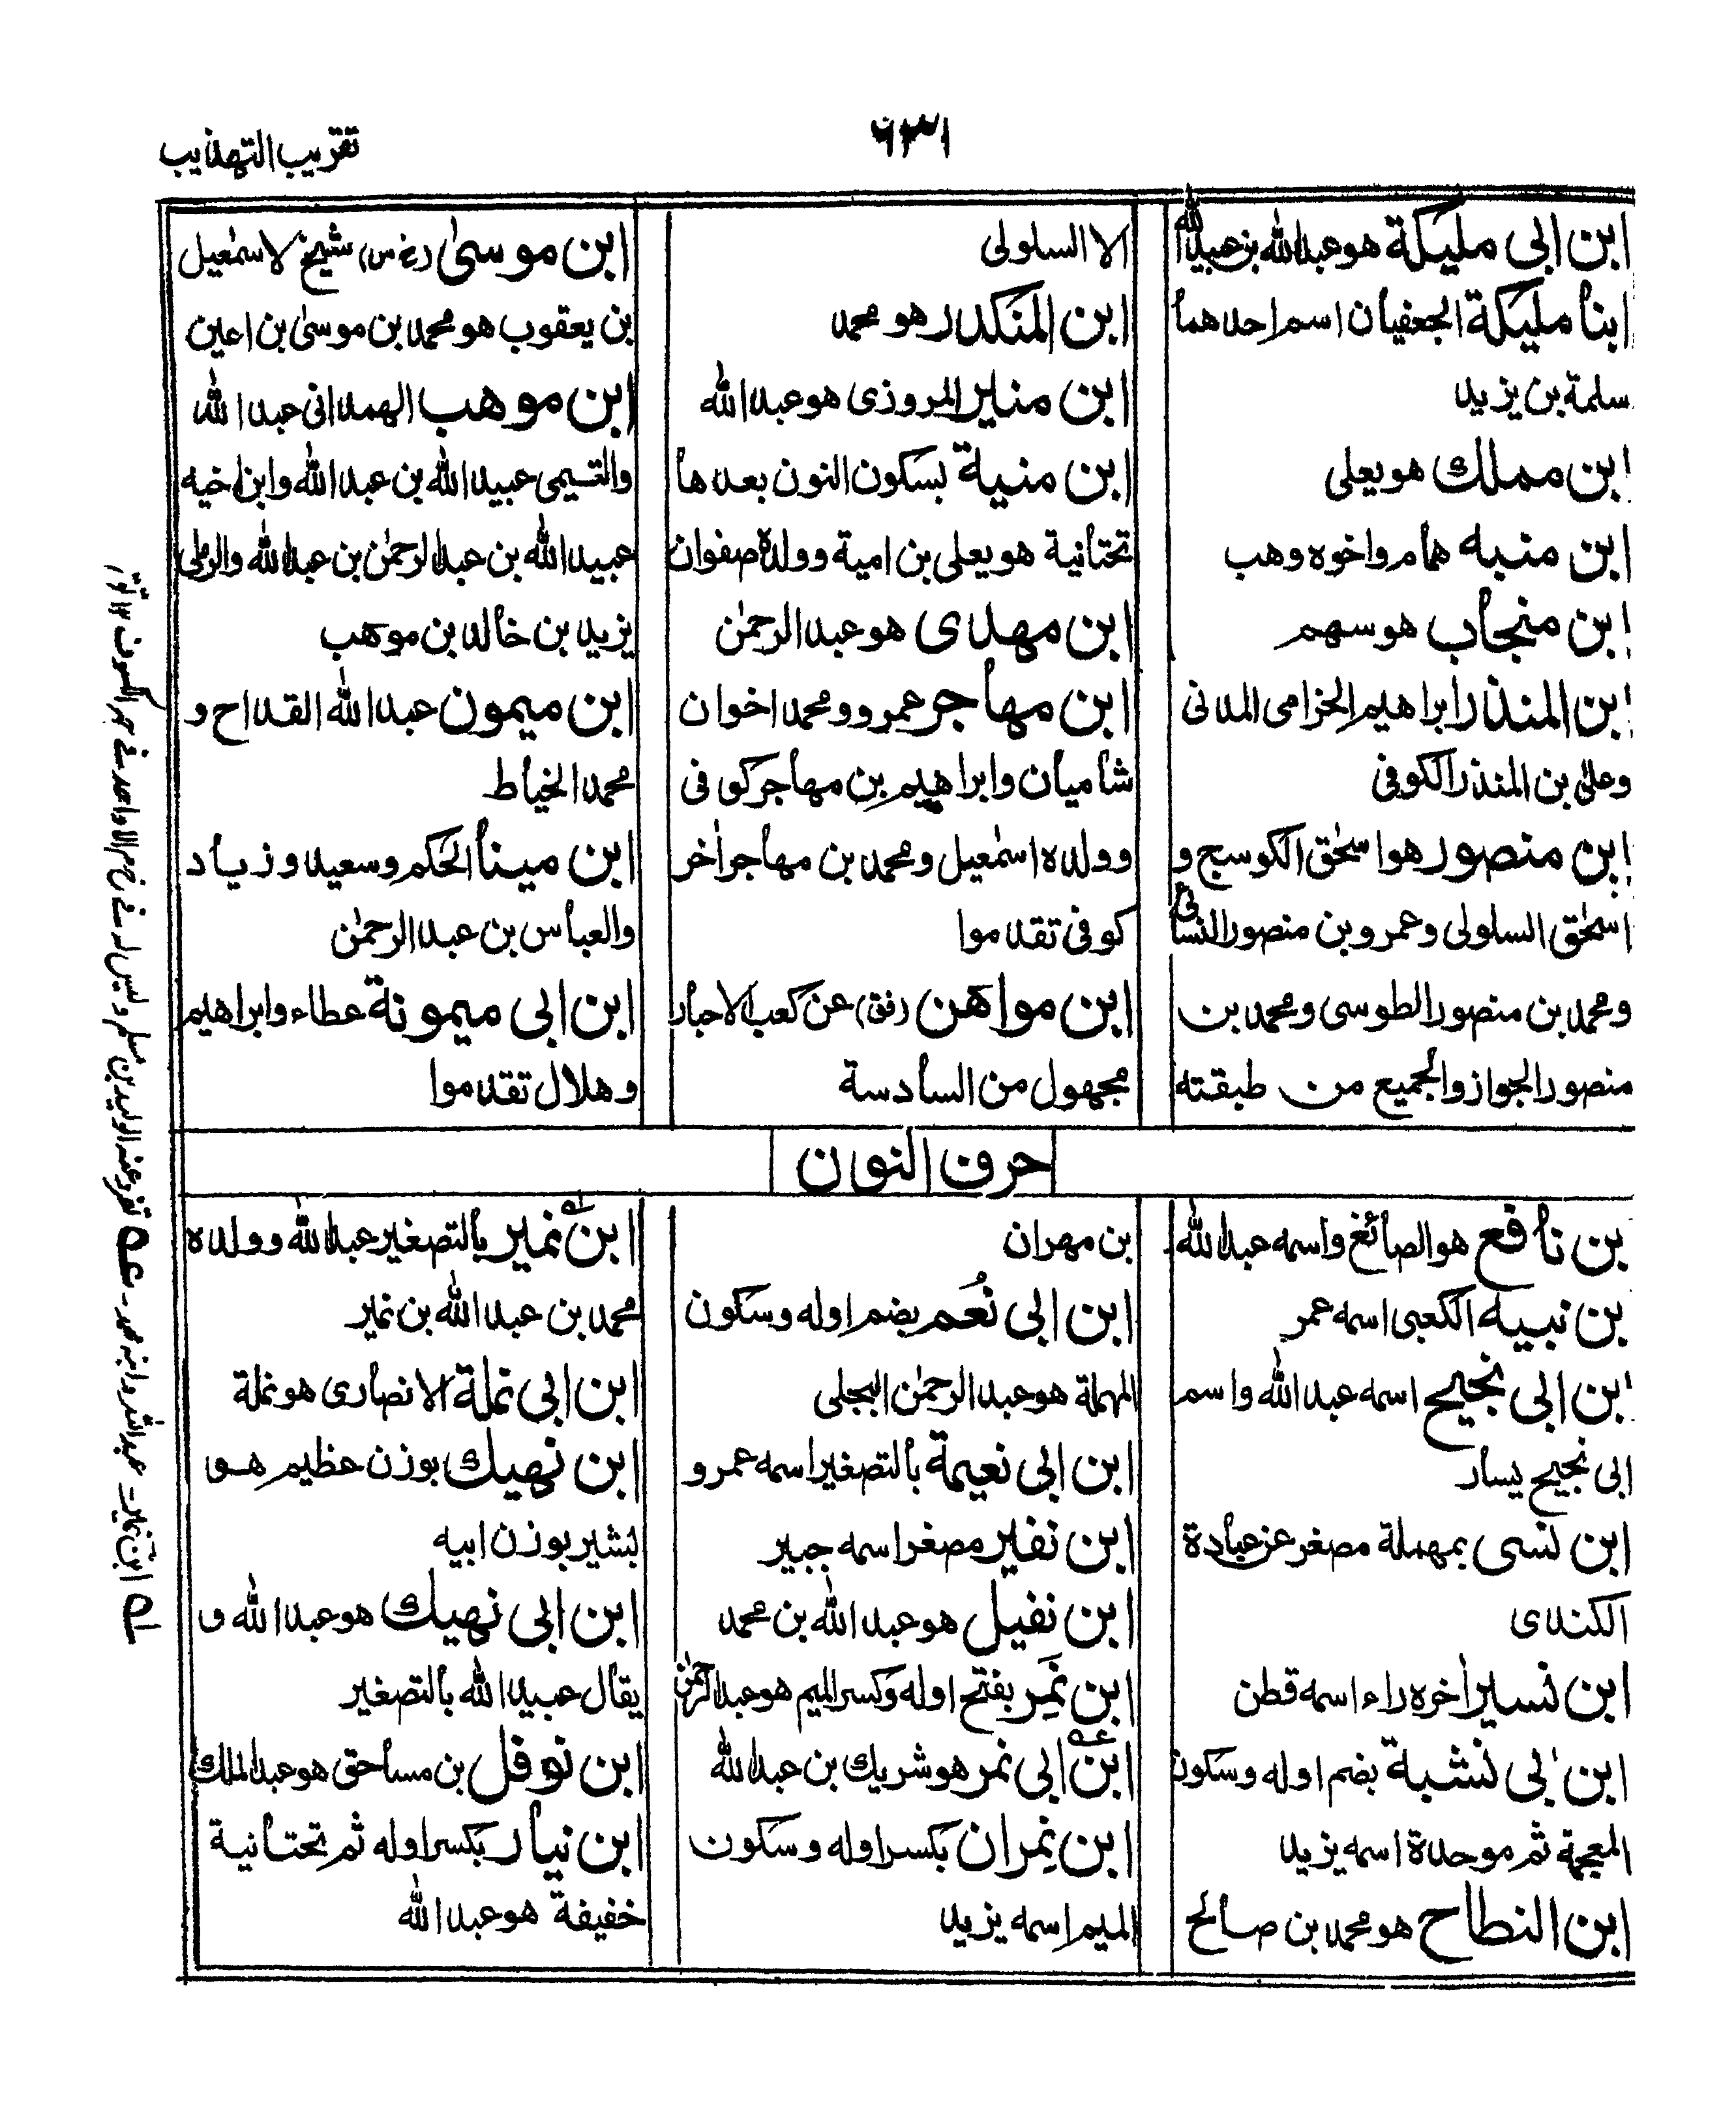 تقريب التهذيب
٦٣١
ابن ابى مليكة هو عبد الله بن عبيد الله
ابنا مليكة الجعفيان اسم احدهما
سلمة بن يزيد
ابن مملك هو يعلى
ابن منبه همام واخوه وهب
ابن منجاب هو سهم
ابن المنذر ابراهيم الخزامى المدنى
وعلى بن المنذر الكوفى
ابن منصور هو اسحٰق الكوسج و
اسحٰق السلولى وعمرو بن منصور النسائى
ومحمد بن منصور الطوسى ومحمد بن
منصور الجواز والجميع من طبقته
الا السلولى
ابن المنكدر هو محمد
ابن منير المروزى هو عبد الله
ابن منية بسكون النون بعدها
تحتانية هو يعلى بن امية وولده صفوان
ابن مهدى هو عبد الرحمٰن
ابن مهاجر عمرو ومحمد اخوان
شاميان وابراهيم بن مهاجر كوفى
وولده اسمٰعيل ومحمد بن مهاجر اٰخر
كوفى تقدموا
ابن مواهن (فق) عن كعب الاحبار
مجهول من السادسة
ابن موسىٰ (غ س) شيخ لاسمٰعيل
بن يعقوب هو محمد بن موسىٰ بن اعين
ابن موهب الهمدانى عبد الله
والتيمى عبيد الله بن عبد الله وابن اخيه
عبيد الله بن عبد الرحمٰن بن عبد الله والرملى
يزيد بن خالد بن موهب
ابن ميمون عبد الله القداح و
محمد الخياط
ابن مينا الحكم وسعيد وزياد
والعباس بن عبد الرحمٰن
ابن ابى ميمونة عطاء وابراهيم
وهلال تقدموا
حرف النون
بن نافع هو الصائغ واسمه عبد الله
بن نبيه الكعبى اسمه عمر
ابن ابى نجيح اسمه عبد الله واسم
ابى نجيح يسار
ابن نسى بمهملة مصغر عن عبادة
الكندى
ابن نسير اٰخره راء اسمه قطن
ابن ابى نشبة بضم اوله وسكون
المعجمة ثم موحدة اسمه يزيد
ابن النطاح هو محمد بن صالح
بن مهران
ابن ابى نُعم بضم اوله وسكون
المهملة هو عبد الرحمٰن البجلى
ابن ابى نعيمة بالتصغير اسمه عمرو
ابن نفير مصغر اسمه جبير
ابن نفيل هو عبد الله بن محمد
ابن نَمِر بفتح اوله وكسر الميم هو عبد الرحمٰن
ابن ابى نمر هو شريك بن عبد الله
ابن نِمران بكسر اوله وسكون
الميم اسمه يزيد
ابن نمير بالتصغير عبد الله وولده
محمد بن عبد الله بن نمير
ابن ابى نملة الانصارى هو نملة
ابن نهيك بوزن عظيم هو
بشير بوزن ابيه
ابن ابى نهيك هو عبد الله و
يقال عبيد الله بالتصغير
ابن نوفل بن مساحق هو عبد الملك
ابن نيار بكسر اوله ثم تحتانية
خفيفة هو عبد الله
له ابن نمير- عبد الله وابنه محمد- عه تفرد عنه الوليد بن مسلم وليس له